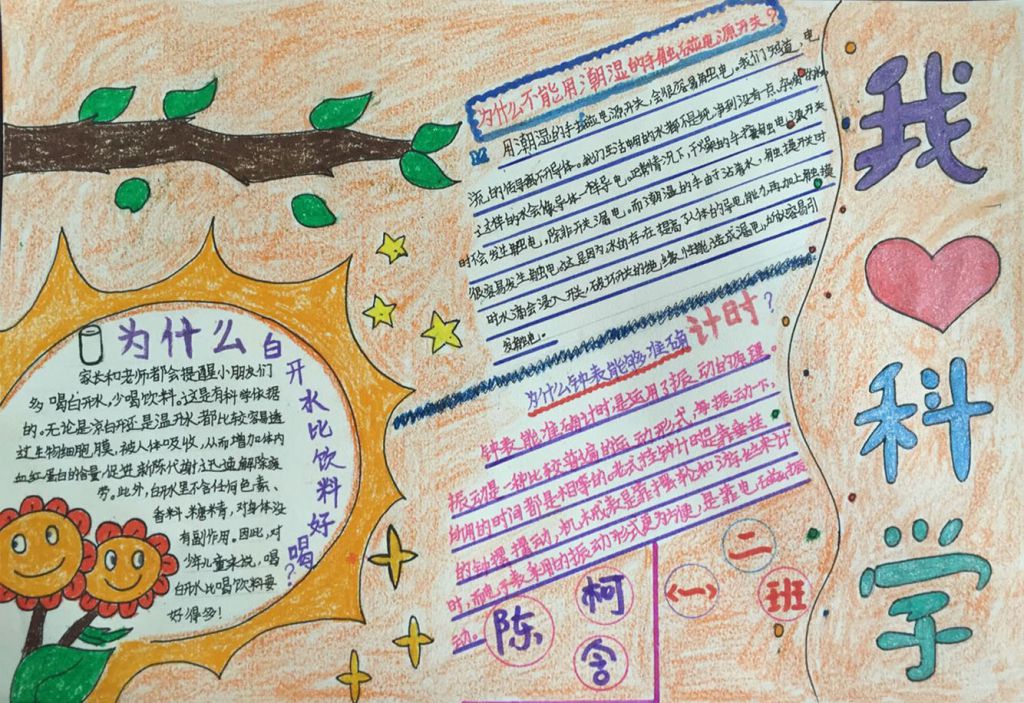 我
科
学
为什么不能用潮湿的手触活应电源开关?
用潮湿的手拉应电源开关,会很容易触电。我们知道,电
流的传导离不开导体。我们生活中用的水都不是纯净到没有一点杂质的水
这样的水会像导体一样导电。正常情况下,干燥的手接触电源开关
时不会发生触电,除非开关漏电。而潮湿的手由于沾着水,触摸开关时
很容易发生触电。这是因为水的存在提高了人体的导电能力,再加上触摸
时水滴会浸入开关,破坏开关的绝缘性能,造成漏电,所以容易引
发触电。
为什么钟表能够准确计时?
钟表能准确计时,是运用了振动的原理。
振动是一种比较普遍的运动形式,每振动一下,
的用的时间都是相等的。老式挂钟计时是靠垂挂
的钟摆摆动,机木戒表是靠摆轮和游丝来计
时,而电子表采用的振动形式更为方便,是靠电
动。
为什么白
开水比饮料好喝?
家长和老师都会提醒小朋友们
多喝白开水,少喝饮料。这是有科学依据
的。无论是凉白开还是温开水都比较容易透
过生物细胞膜,被人体吸收,从而增加体内
血红蛋白的含量,促进新陈代谢,迅速解除疲
劳。此外,白开水里不含任何色素、
香料、糖精,对身体没
有副作用。因此,对
少年儿童来说,喝
白开水比喝饮料要
好得多!
陈柯含
二〈一〉班